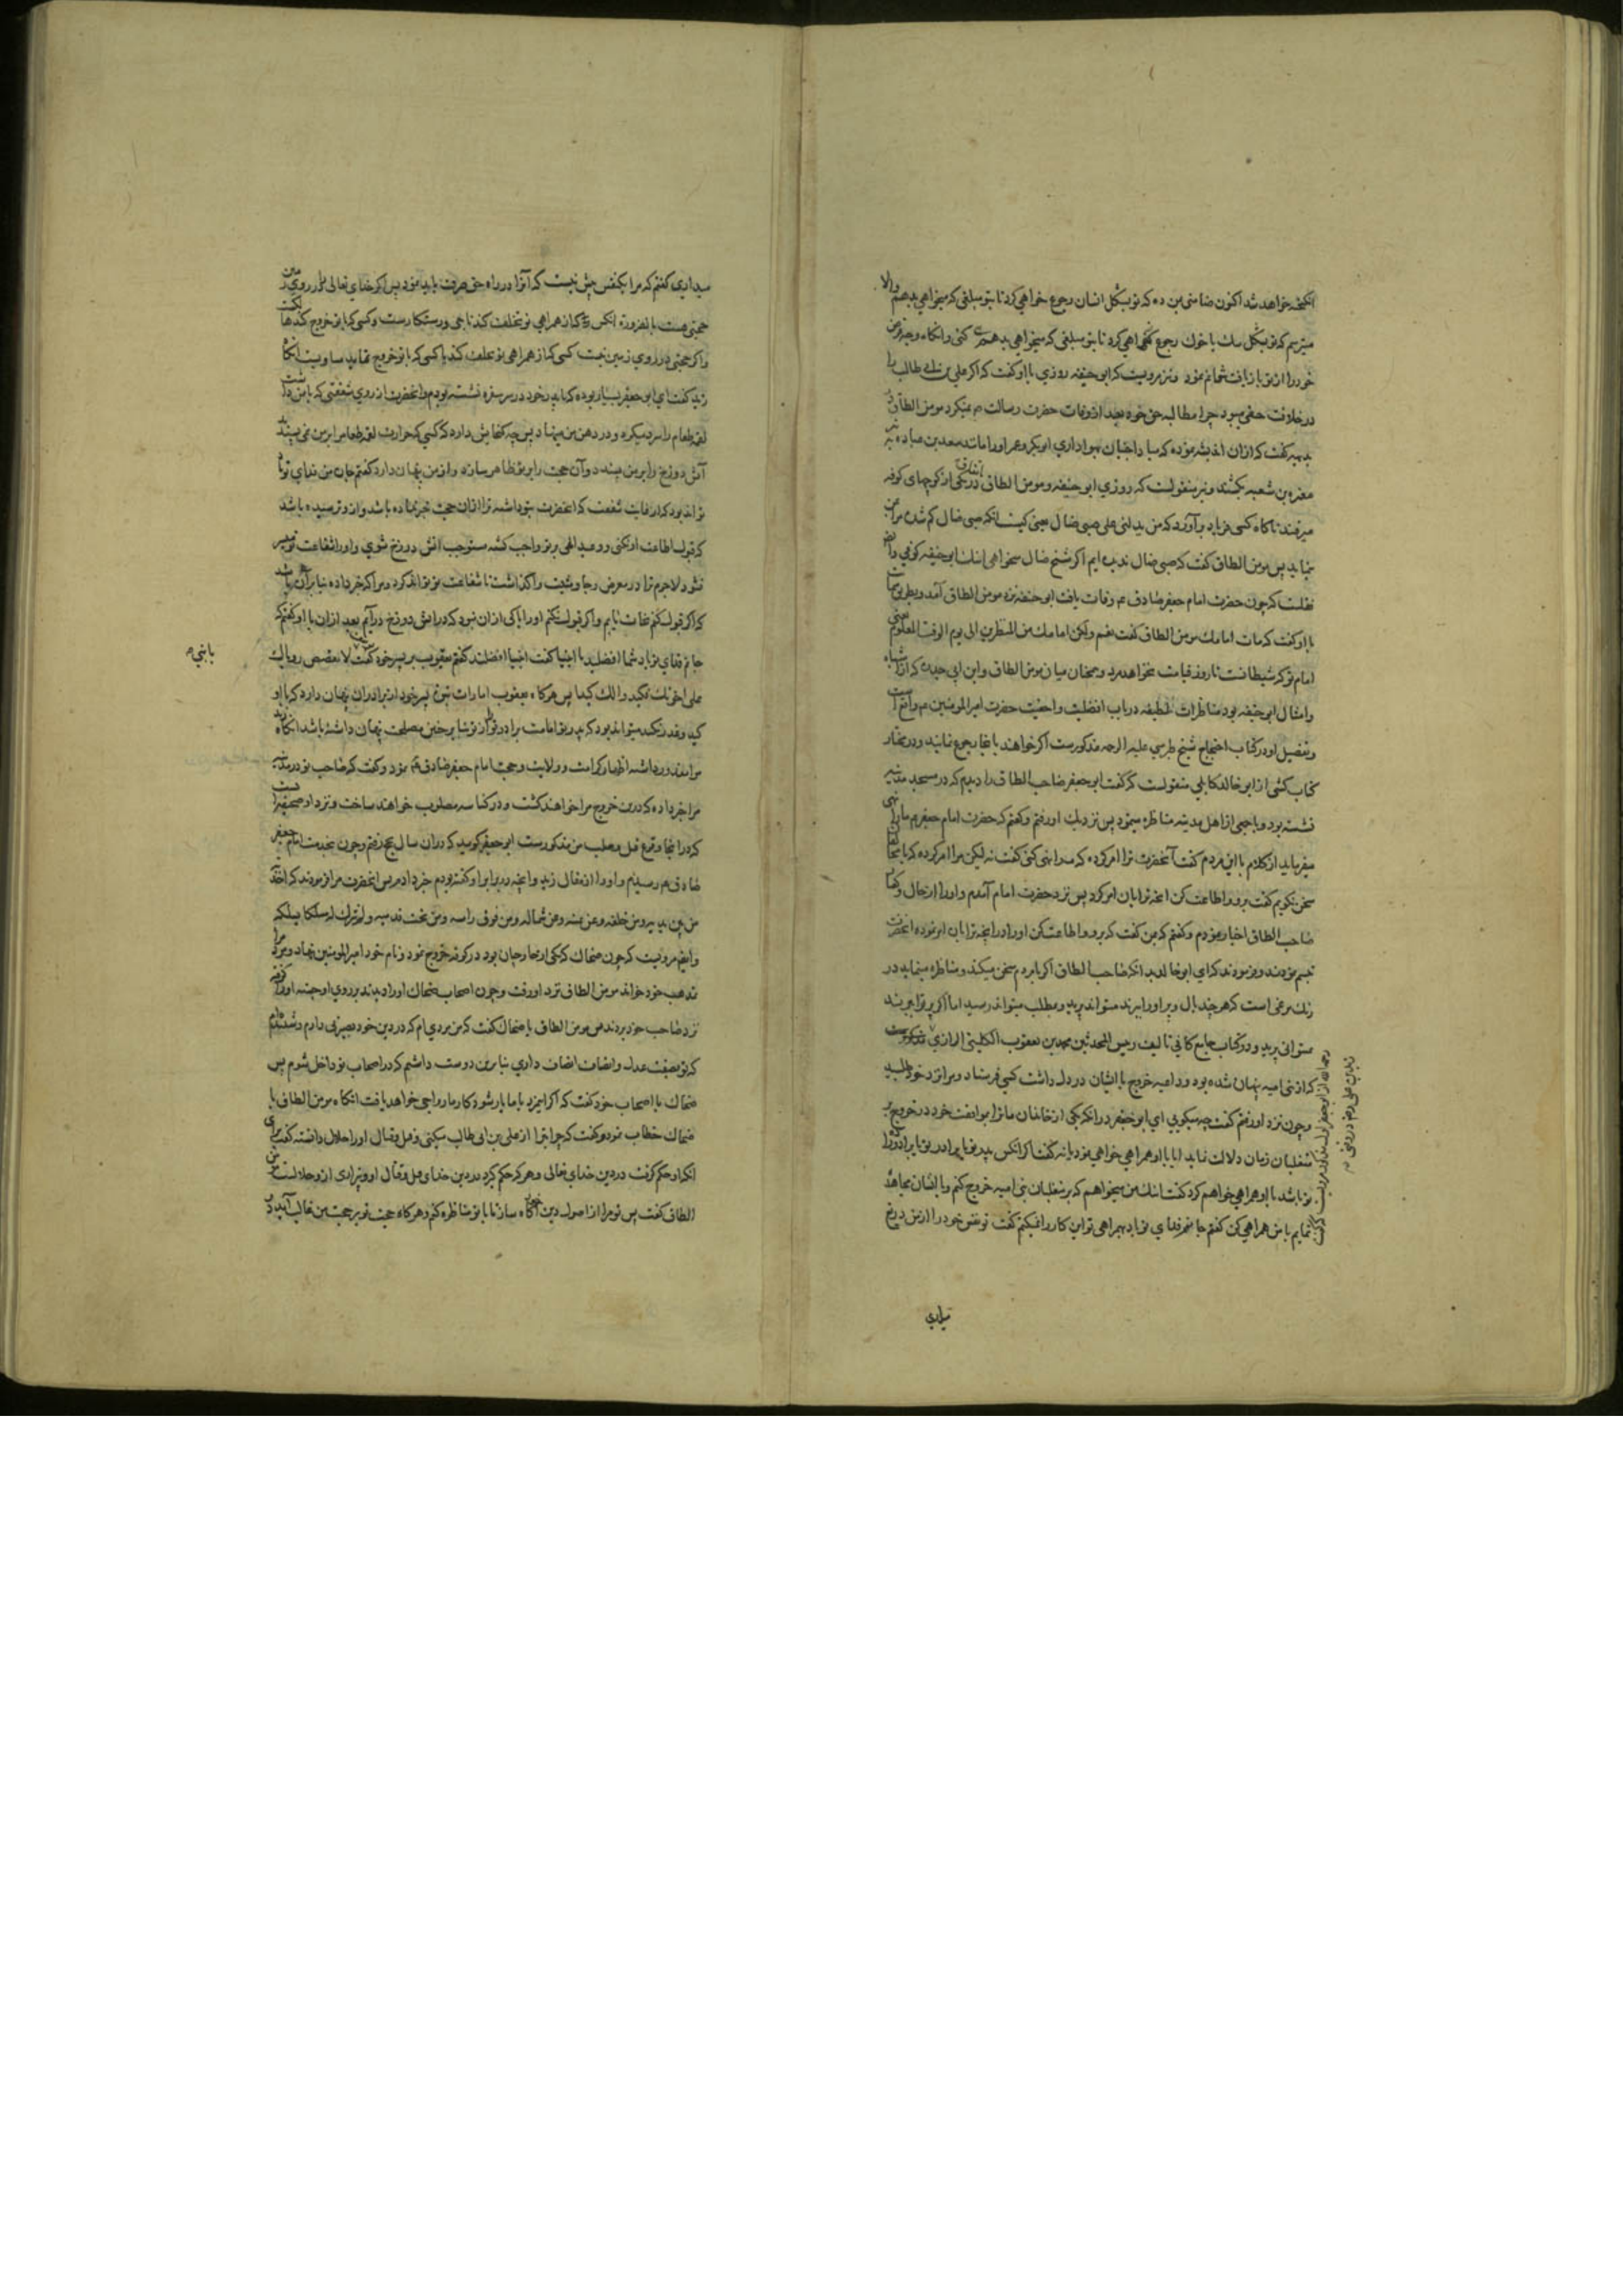 انکیخته خواهد شد اکنون ضامنی بمن ده که تو بشکل انسان رجوع خواهی کرد تا بتو مبلغی که میخواهی بدهم والا
میترسم که تو بشکل سک یا خوک رجوع کنی
خود را از تو باز یافت نتوانم نمود و نیز مرویست که ابو حنیفه روزی با او کفت که اکر علی بن ابی طالب را
در خلافت حقی میبود چرا مطالبه حق خود بعد از وفات حضرت رسالت م نمیکرد مومن الطاق در
بدیهه کفت که ازان اندیشه نموده که مبادا جنیان بهواداری ابوبکر و عمر او را مانند سعد بن عباده به تیر
مغیره بن شعبه بکشند و نیز منقولست که روزی ابو حنیفه و مومن الطاق باتفاق در یکی از کوچهای کوفه
میرفتند ناکاه کسی فریاد بر آورد که من یدلنی علی صبی ضال یعنی کیست انکه صبی ضال کم شده مرا بمن
نماید پس مومن الطاق کفت که صبی ضال ندیده ایم اکر شیخ ضال میخواهی اینک ابو حنیفه کوفی و ایضا
نقلست که چون حضرت امام جعفر صادق عم وفات یافت ابو حنیفه نزد مومن الطاق آمد و بطریق شماتت
با او کفت که مات امامک مومن الطاق کفت نعم ولکن امامک من المنظرین الی یوم الوقت المعلوم یعنی
امام تو که شیطانست تا روز قیامت نخواهد مرد و همچنان میان مومن الطاق و ابن ابی حدره که از اشباه
و امثال ابو حنیفه بود مناظرات لطیفه در باب افضلیت و احقیت حضرت امیر المومنین م واقع است
و تفصیل او در کتاب احتجاج شیخ طبرسی علیه الرحمه مذکورست اکر خواهند باغا رجوع نمایند و در مختار
کتاب کشی از ابو خالد کابلی منقولست که کفت ابو جعفر صاحب الطاق را دیدم که در مسجد مدینه
نشسته بود و با جمعی از اهل مدینه مناظره مینمود پس نزدیک او رفتم و کفتم که حضرت امام جعفر م ما را نهی
میفرماید از کلام با این مردم کفت آنحضرت ترا امر کرده که مرا نهی کنی کفت نه لیکن مرا امر کرده که با هیچکس
سخن نکویم کفت برو و اطاعت کن انچه ترا بان امر کرد پس نزد حضرت امام آمدم و او را از حال و کفتار
صاحب الطاق اخبار نمودم و کفتم که بمن کفت که برو و اطاعت کن او را در انچه ترا بان امر نموده انحضرت
تبسم نمودند و فرمودند که ای ابو خالد بدانکه صاحب الطاق اکر با مردم سخن میکند و مناظره مینماید در
رنک مرغی است که هر چند بال و پر او را ببرند میتواند پرید و بمطلب میتواند رسید اما اکر پر ترا ببرند
نمیتوانی پرید و در کتاب جامع کافی تالیف رییس المحدثین محمد بن یعقوب الکلینی الرازی
که از بنی امیه پنهان شده بود و داعیه خروج با ایشان در دل داشت کسی فرستاد و مرا نزد خود طلبید
و چون نزد او رفتم کفت چه میکویی ای ابو جعفر در انکه یکی از خاندان ما ترا بموافقت خود در خروج بر
متغلبان زمان دلالت نماید ایا با او همراهی خواهی نمود یا نه کفت اکر انکس پدر تو یا برادر تو یا برادرزاده
تو باشد با او همراهی خواهم کرد کفت اینک من میخواهم که بر متغلبان بنی امیه خروج کنم و با ایشان مجاهده
نمایم با من همراهی کن کفتم جانم فدای تو باد بهمراهی تو این کار را نمیکنم کفت تو نفس خود را از من دریغ
میداری
میداری کفتم که مرا یکنفس بیش نیست که آنرا در راه حق صرف باید نمود پس اکر خدای تعالی را در روی زمین
حجتی هست بالضروره انکس که از همراهی تو تخلف کند ناجی و رستکارست و کسی که با تو خروج کند هالکست
و اکر حجتی در روی زمین نیست کسی که از همراهی تو تخلف کند یا کسی که با تو خروج نماید مساویست انکاه
زید کفت ای ابو جعفر بسیار بوده که با پدر خود در سر سفره نشسته بودم و انحضرت از روی شفقتی که با من داشت
لقمه طعام را سرد میکرد و در دهن من مینهاد پس چه کنجایش دارد که کسی که حرارت لقمه طعام را بر من نمی پسندد
آتش دوزخ را بر من پسندد و آن حجت را بر تو ظاهر سازد و از من پنهان دارد کفتم جان من فدای تو باد
تواند بود که از غایت شفقت که انحضرت بتو داشت ترا از ان حجت خبر نداده باشد و از و ترسیده باشد
که قبول اطاعت او نکنی و وعید الهی بر تو واجب کشته مستوجب آتش دوزخ شوی و او را شفاعت تو میسر
نشود لاجرم ترا در معرض رجا و مشیت وا کذاشت تا شفاعت تو تواند کرد و مرا که خبر داده بنا بر آن باشد
که اکر قبول کنم نجات یابم و اکر قبول نکنم او را باکی از ان نبود که در آتش دوزخ درآیم بعد از ان با او کفتم که
جانم فدای تو باد شما افضلید یا انبیا کفت انبیا افضلند کفتم یعقوب بر پسر خود کفت لا تقصص رویاک
یا بنی م
علی اخوتک فیکیدوا لک کیدا پس هرکاه یعقوب امارات نبوت پسر خود از برادران پنهان دارد که با او
کید و مکر نکنند میتواند بود که پدر تو امامت برادر تو از تو بنا بر چنین مصلحت پنهان داشته باشد انکاه
مرا معذور داشته اظهار کرامت و ولایت و حجت امام جعفر صادق عم نمود و کفت که صاحب تو در مدینه
مرا خبر داده که درین خروج مرا خواهند کشت و در کناسه مصلوب خواهند ساخت و نزد او صحیفه ایست
که در انجا وقوع قتل و صلب من مذکورست ابو جعفر کوید که در ان سال بحج رفتم و چون بخدمت امام جعفر
صادق م رسیدم و او را از مقال زید و انچه در برابر او کفته بودم خبر دادم پس انحضرت مرا فرمودند که اخذته
من بین یدیه و من خلفه و عن یمینه و عن شماله و من فوق راسه و من تحت قدمیه و لم تترک له مسلکا یسلکه
و ایضا مرویست که چون ضحاک که یکی از خارجیان بود در کوفه خروج نمود و نام خود امیر المومنین نهاد و مردم را
بمذهب خود خواند مومن الطاق نزد او رفت و چون اصحاب ضحاک او را دیدند بر روی او جسته او را کرفته
نزد صاحب خود بردند پس مومن الطاق با ضحاک کفت که من مردی ام که در دین خود بصیرتی دارم و شنیده ام
که تو بصفت عدل و انصاف اتصاف داری بنا برین دوست داشتم که در اصحاب تو داخل شوم پس
ضحاک با اصحاب خود کفت که اکر اینمرد با ما یار شود کار ما رواجی خواهد یافت انکاه مومن الطاق با
ضحاک خطاب نمود و کفت که چرا تبرا از علی بن ابی طالب میکنی و قتل و قتال او را حلال دانسته کفت برای
انکه او حکم کرفت در دین خدای تعالی و هر که حکم کیرد در دین خدای قتل و قتال او و بیزاری از و حلالست مومن
الطاق کفت پس تو مرا از اصول دین خود آکاه ساز تا با تو مناظره کنم و هرکاه حجت تو بر حجت من غالب آید